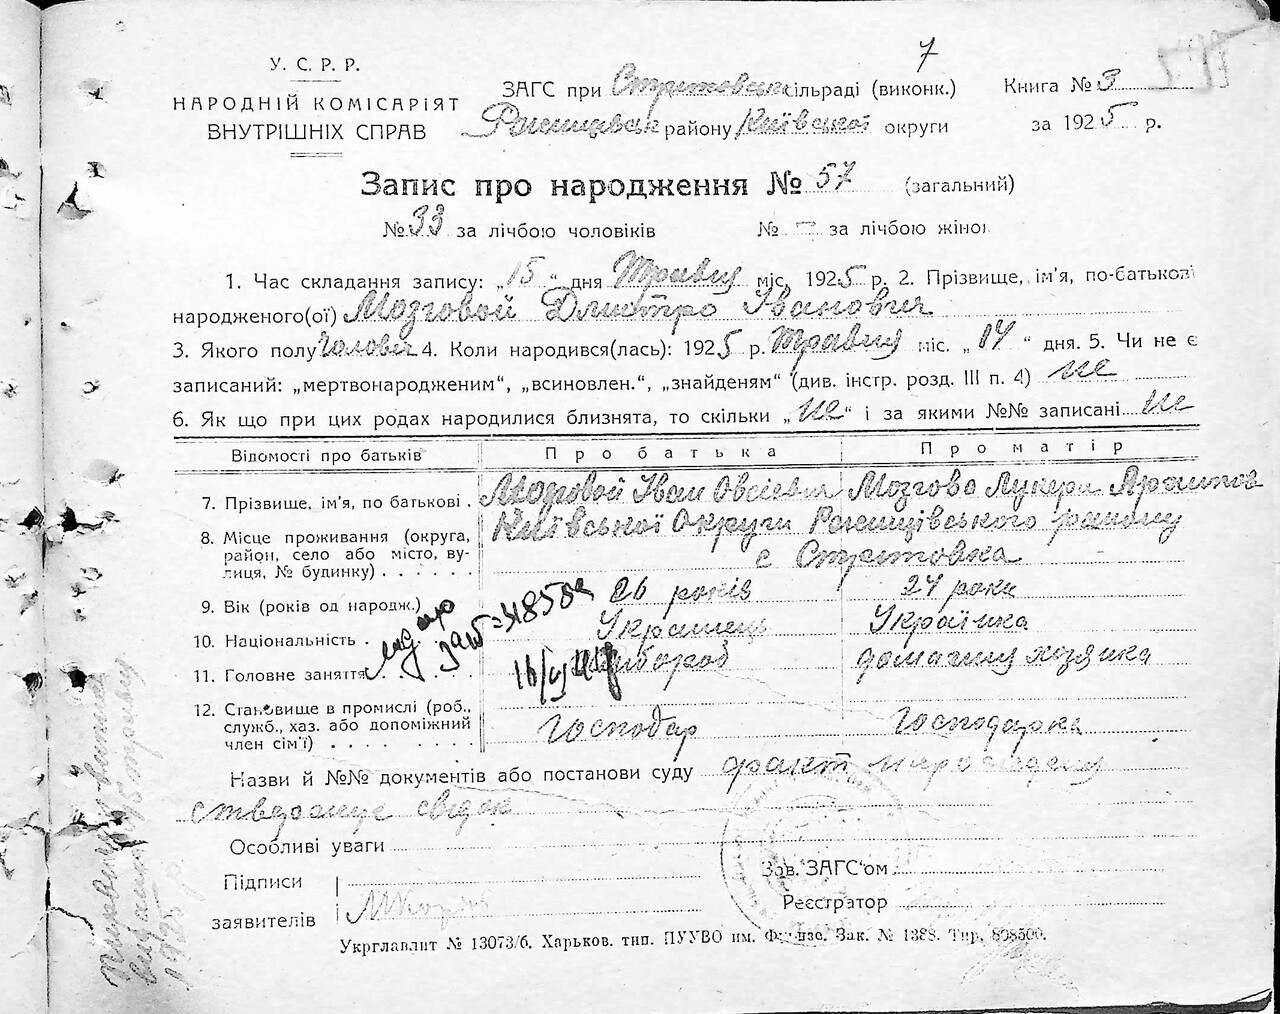 7
У. С. Р. Р.
НАРОДНІЙ КОМІСАРІЯТ
ВНУТРІШНІХ СПРАВ
ЗАГС при Стритовськ сільраді (виконк.)
Ржищевськ району Київської округи
Книга № 3
за 1925 р.
Запис про народження № 57 (загальний)
№ 33 за лічбою чоловіків № – за лічбою жінок
1. Час складання запису: „15“ дня Травня міс. 1925 р. 2. Прізвище, ім'я, по-батькові
народженого(ої) Мозговой Дмитро Іванович
3. Якого полу Чоловіч 4. Коли народився(лась): 1925 р. Травня міс. „14“ дня. 5. Чи не є
записаний: „мертвонародженим“, „всиновлен.“, „знайденям“ (див. інстр. розд. III п. 4) не
6. Як що при цих родах народилися близнята, то скільки „не“ і за якими №№ записані не
Відомості про батьків Про батька Про матір
7. Прізвище, ім'я, по батькові . Мозговой Іван Овсієвич Мозгова Лукера
8. Місце проживання (округа, район, село або місто, вулиця, № будинку) . . . . . . Київської Округи Ржищівського району
с Стритовка
9. Вік (років од народж.) 26 років 24 роки
10. Національність . Українець Українка
11. Головне заняття . . . . . Хлібороб домашня хозяйка
12. Становище в промислі (роб., служб., хаз. або допоміжний член сім'ї) . . . . . . . . Господар Господарка
Назви й №№ документів або постанови суду факт народження
стверджує свідок
Особливі уваги
Підписи
заявителів
Зав. ЗАГС'ом
Реєстратор
Укрглавлит № 13073/б. Харьков. тип. ПУУВО им. Фрунзе. Зак. № 1388. Тир. 808500.